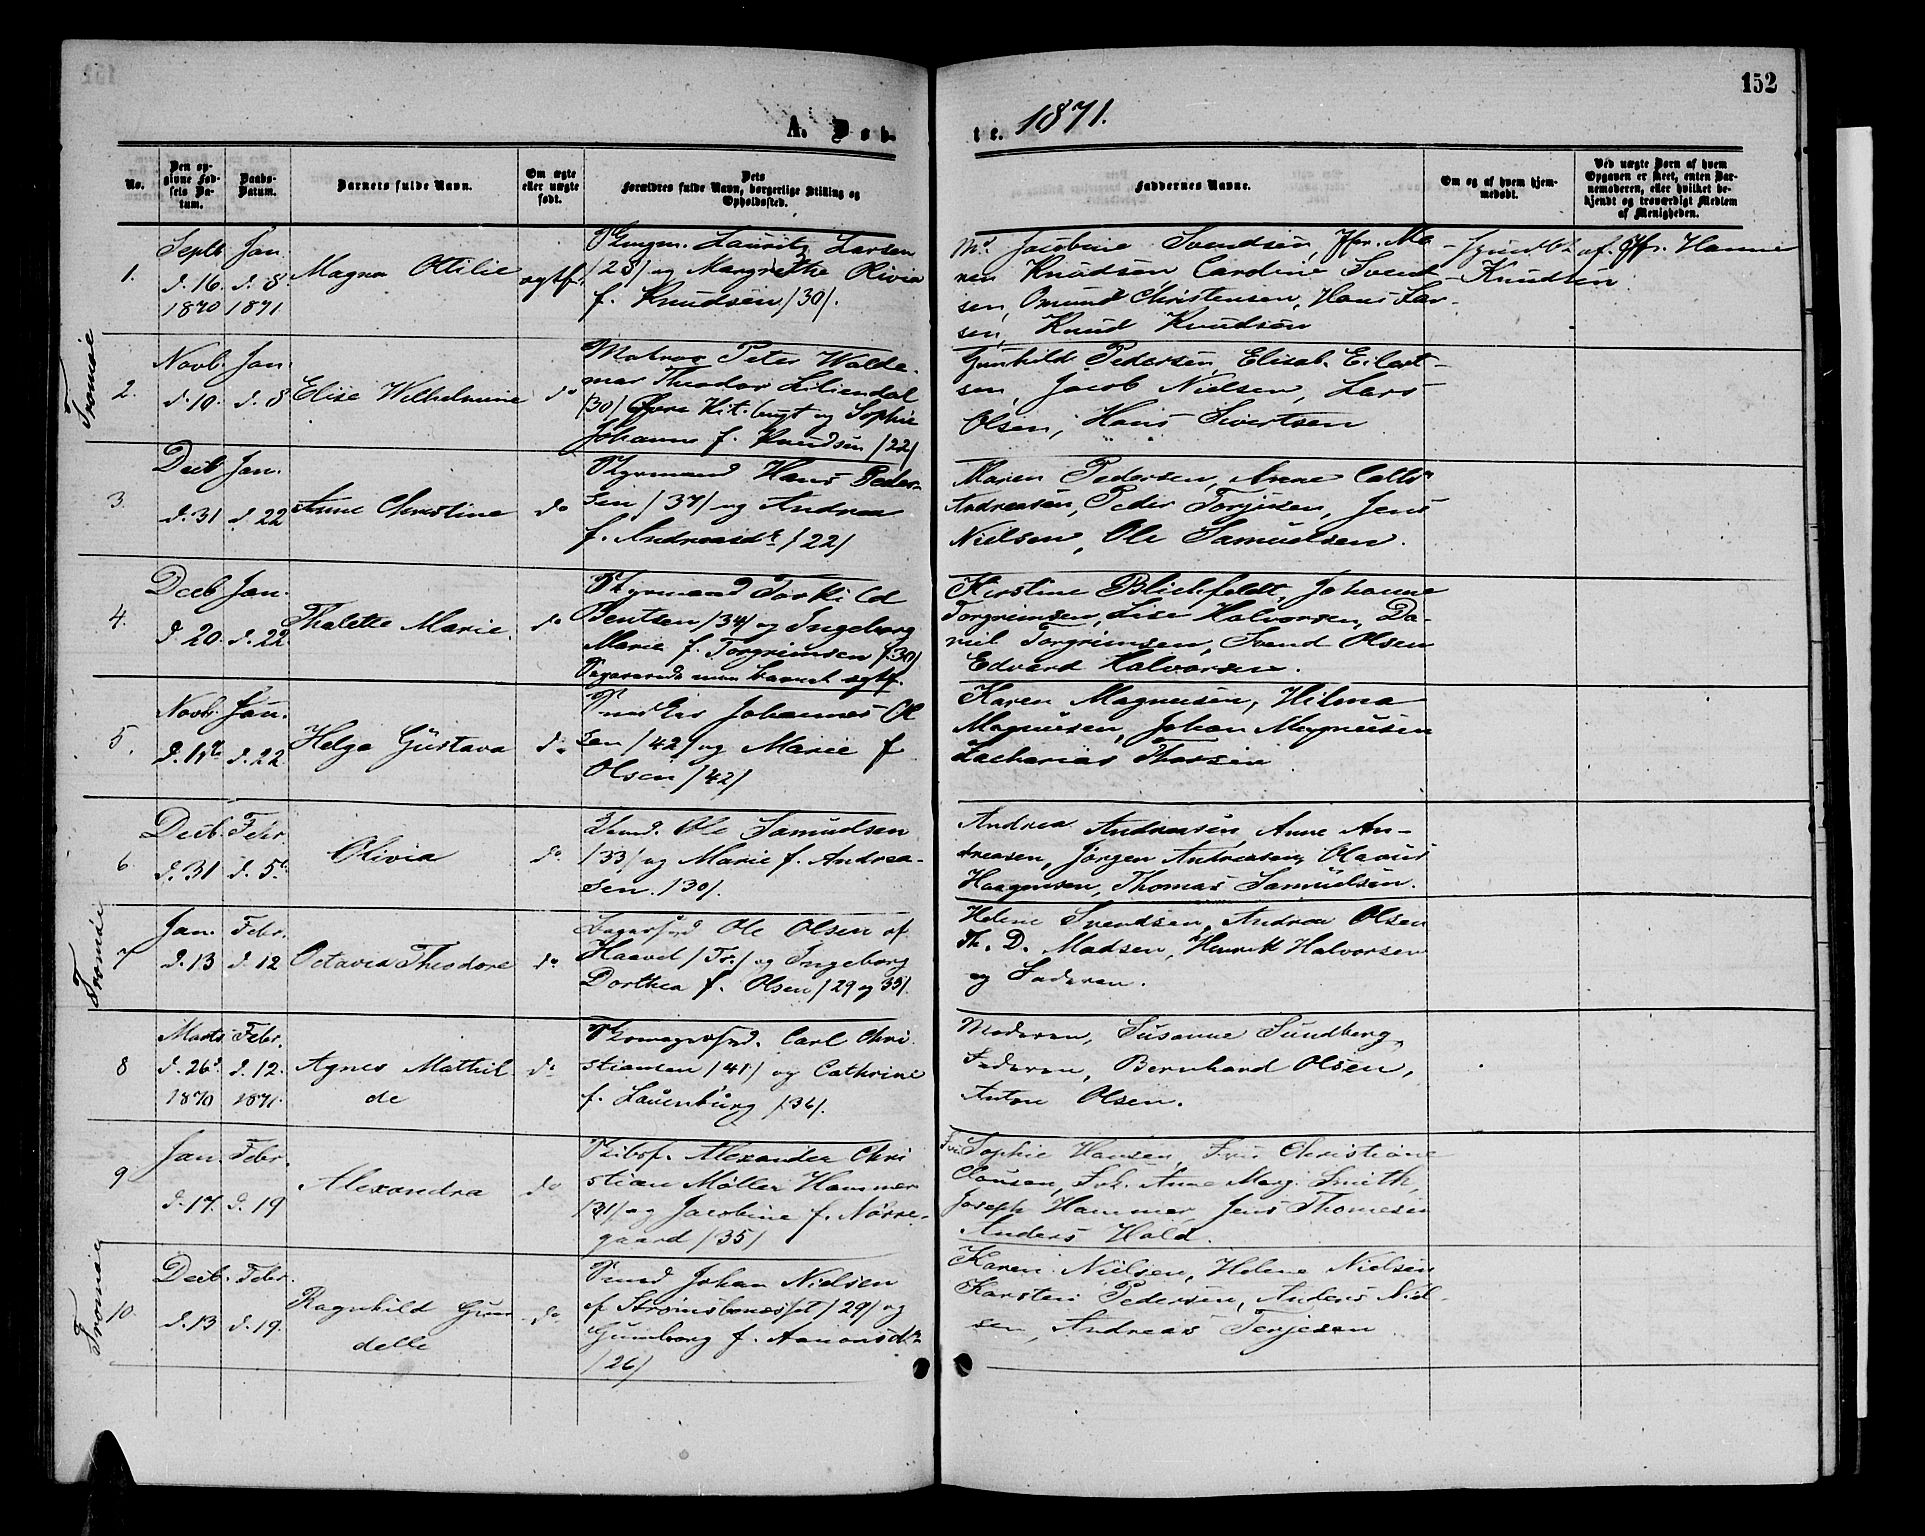 152
A. Døb-
te. 1871.
No.
Den op-
givne Fød-
sels Da-
tum.
Daabs-
Datum.
Barnets fulde Navn.
Om ægte
eller uægte
født.
Dets
Forældres fulde Navn, borgerlige Stilling og
Opholdssted.
Faddernes Navne.
Om og af hvem hjem-
medøbt.
Ved uægte Børn af hvem
Opgaven er skeet, enten Bar-
nemoderen, eller hvilket be-
kjendt og troværdigt Medlem
af Menigheden.
1.
Septb.
d. 16.
1870
Jan.
d. 8.
1871.
Magna Ottilie
ægtf.
Lauritz Larsen
/28/ og Margrethe Olivia
f. Knudsen /30/.
Md. Jacobine Svendsen, Jfr. Ma-
ren Knudsen, Caroline Svend-
sen, Omund Christensen, Hans Lar-
sen, Knud Knudsen
af Jfr. Hanne
Knudsen.
Tromøe
2.
Novb.
d. 10.
Jan.
d. 8
Elise Wilhelmine
do
Matros Peter Walde-
mar Theodor Liliendal
/30/ Øvre Kit.bugt og Sophie
Johanne f. Knudsen /22/
Gunhild Pedersen, Elisab. Eilert-
sen, Jacob Nielsen, Lars
Olsen, Hans Sivertsen
3.
Decb
d. 31
Jan.
d. 22
Anne Christine
do
Styrmand Hans Peder-
sen /37/ og Andrea
f. Andreasdr /22/
Maren Pedersen, Anne Cath.
Andreasen, Peder Torjusen, Jens
Nielsen, Ole Samuelsen.
4.
Decb
d. 20.
Jan.
d. 22.
Thalette Marie.
do
Styrmand Torkild
Bentsen /34/ og Ingeborg
Marie f. Torgrimsen /30/
Barnet ægtf.
Kirstine Blichfeldt, Johanne
Torgrimsen, Lise Halvorsen, Da-
niel Torgrimsen, Svend Olsen
Edvard Halvorsen.
5.
Novb.
Jan.
d. 22.
Helga Gustava
do
Johannes Ol
sen /42/ og Marie f
Olsen /42/
Karen Magnusen, Hilma
Magnusen, Johan Magnusen
Zacharias Thorsen
6
Decb.
d. 31
Febr.
d. 5.
Olivia
do
Ole Samuelsen
/33/ og Marie f. Andrea-
sen. /30/.
Andrea Andreasen, Anne An-
dreasen, Jørgen Andreasen, Olaus
Haagensen, Thomas Samuelsen.
Tromøe
7
Jan.
d. 13
Febr.
d. 12
Octavia Theodore
do
Ole Olsen af
Haavet /Tr./ og Ingeborg
Dorthea f. Olsen /29 og 33/.
Helene Svendsen, Andrea Olsen
Th. D. Madsen, Henrik Halvorsen
og Faderen.
8
Marts
d. 26d
1870
Febr.
d. 12.
1871.
Agnes Mathil
de
do
Carl Chri
stiansen /41/ og Cathrine
f. Lauenburg /36/.
Moderen, Susanne Sundberg,
Faderen, Bernhard Olsen,
Anton Olsen.
9
Jan.
d. 17.
Febr.
d. 19
Alexandra
do
Skibsf. Alexander Chri
stian Møller Hammer
/31/ og Jacobine f. Nørre-
gaard /35/
Fru Sophie Hansen, Fru Christiane
Clausen, Frk. Anne Marg. Smith,
Joseph Hammer, Jens Thomesen
Anders Hold.
Tromøe
10.
Decb.
d. 13
Febr.
d. 19.
Ragnhild Gun
delle
do
Johan Nielsen
af Strømsbonæsset /29/ og
Gunnborg f. Aanonsdr
/26/
Karen Nielsen, Helene Nielsen
Karsten Pedersen, Anders Niel-
sen, Andreas Terjesen